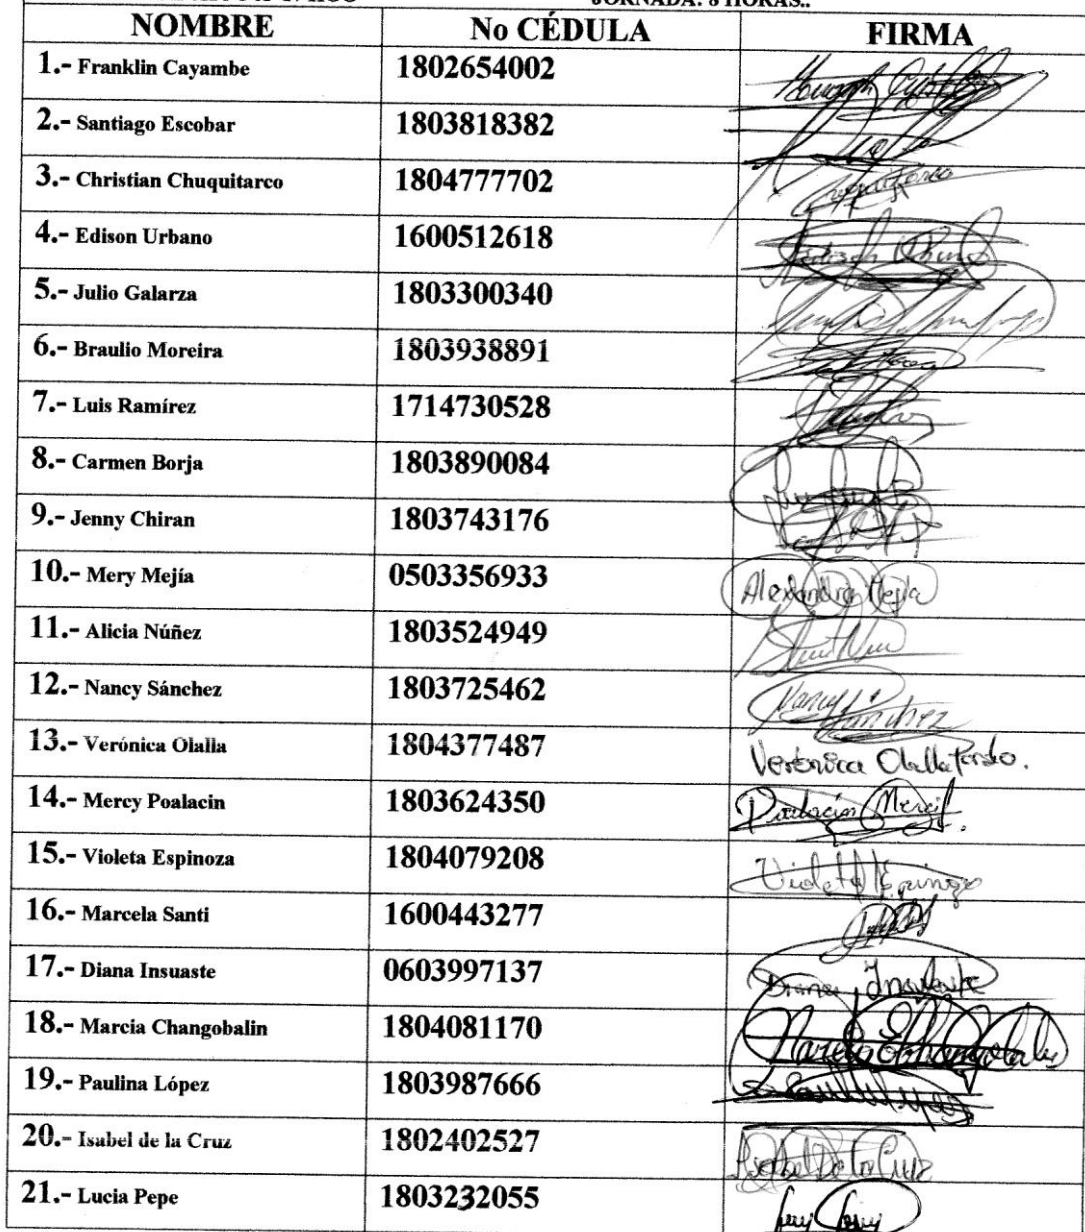 JORNADA: 8 HORAS..
NOMBRE No CÉDULA FIRMA
1.- Franklin Cayambe 1802654002
2.- Santiago Escobar 1803818382
3.- Christian Chuquitarco 1804777702
4.- Edison Urbano 1600512618
5.- Julio Galarza 1803300340
6.- Braulio Moreira 1803938891
7.- Luis Ramírez 1714730528
8.- Carmen Borja 1803890084
9.- Jenny Chiran 1803743176
10.- Mery Mejía 0503356933 Alexandra Mejía
11.- Alicia Núñez 1803524949
12.- Nancy Sánchez 1803725462 Nancy Sánchez
13.- Verónica Olalla 1804377487 Verónica Olalla
14.- Mercy Poalacin 1803624350 Poalacín Mercy
15.- Violeta Espinoza 1804079208 Violeta Espinoza
16.- Marcela Santi 1600443277
17.- Diana Insuaste 0603997137 Diana Insuaste
18.- Marcia Changobalin 1804081170
19.- Paulina López 1803987666
20.- Isabel de la Cruz 1802402527 Isabel De la Cruz
21.- Lucia Pepe 1803232055